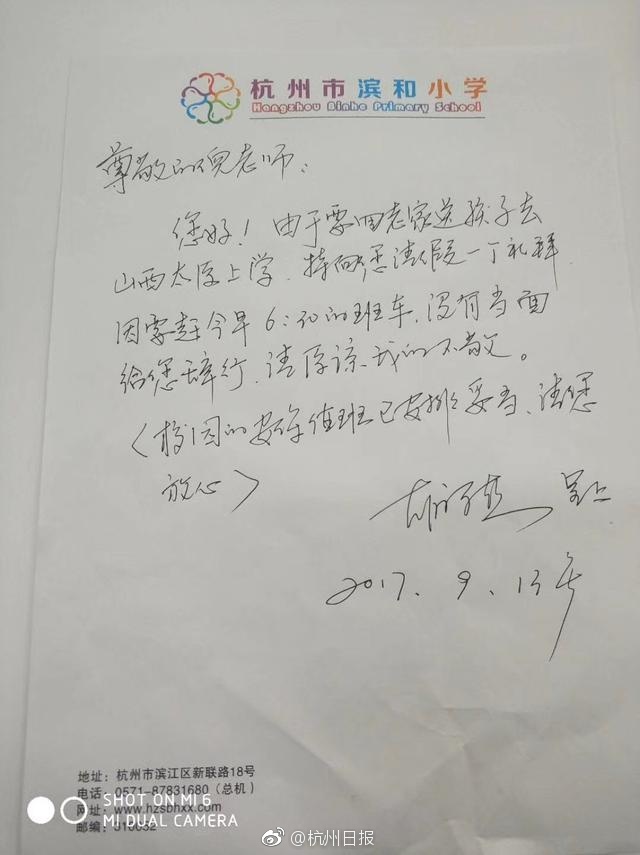 杭州市滨和小学
Hangzhou Binhe Primary School
尊敬的倪老师：
您好！由于要回老家送孩子去
山西太原上学，特向您请假一个礼拜
因需赶今早6:20的班车，没有当面
给您辞行，请原谅我的不敬。
（校园的安保值班已安排妥当、请您
放心）
呈上
2017.9.13
地址：杭州市滨江区新联路18号
电话：0571-87831680（总机）
网址：www.hzsbhxx.com
邮编：310052
SHOT ON MI 6
MI DUAL CAMERA
@杭州日报